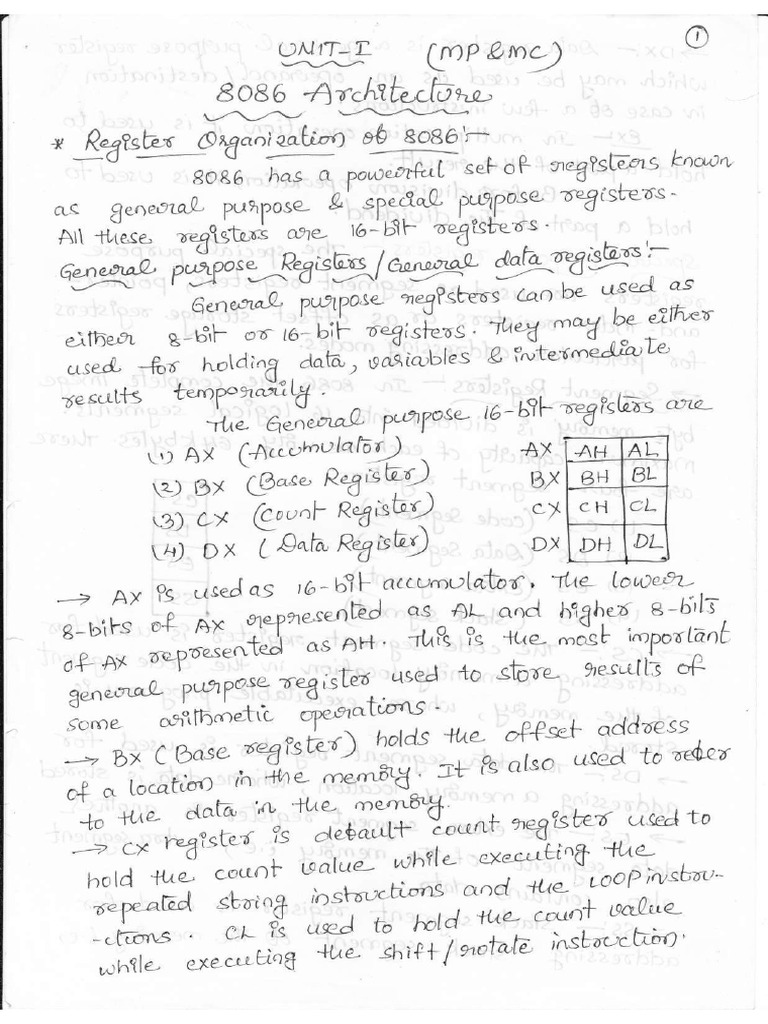 1
UNIT-I (MP & MC)
8086 Architecture
* Register Organization of 8086:-
8086 has a powerful set of registers known
as general purpose & special purpose registers.
All these registers are 16-bit registers.
General purpose Registers/General data registers:-
General purpose registers can be used as
either 8-bit or 16-bit registers. They may be either
used for holding data, variables & intermediate
results temporarily.
The General purpose 16-bit registers are
(1) AX (Accumulator)
(2) BX (Base Register)
(3) CX (Count Register)
(4) DX (Data Register)
AX AH AL
BX BH BL
CX CH CL
DX DH DL
→ AX is used as 16-bit accumulator. The lower
8-bits of AX represented as AL and higher 8-bits
of AX represented as AH. This is the most important
general purpose register used to store results of
some arithmetic operations.
→ BX (Base register) holds the offset address
of a location in the memory. It is also used to refer
to the data in the memory.
→ CX register is default count register used to
hold the count value while executing the
repeated string instructions and the LOOP instru-
-ctions. CL is used to hold the count value
while executing the shift/rotate instruction.